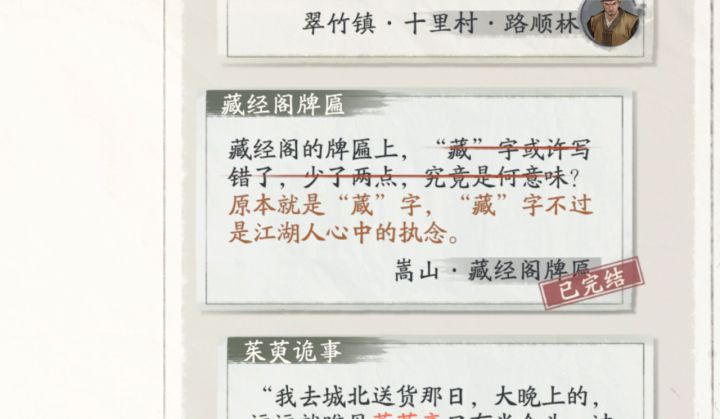 翠竹镇·十里村·路顺林
藏经阁牌匾
藏经阁的牌匾上，“藏”字或许写
错了，少了两点，究竟是何意味？
原本就是“蔵”字，“藏”字不过
是江湖人心中的执念。
嵩山·藏经阁牌匾
已完结
茱萸诡事
“我去城北送货那日，大晚上的，